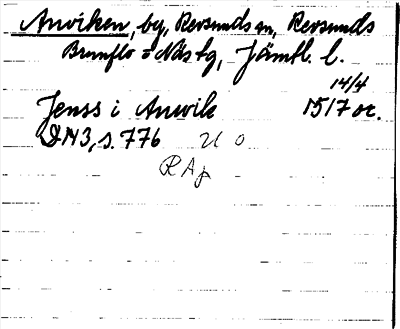 Anviken, by, Revsunds sn, Revsunds
Brunflo o Näs tg, Jämtl. l.
14/4
Jenss i Anwik 1517 or.
DN3, s. 776 U o
RAp